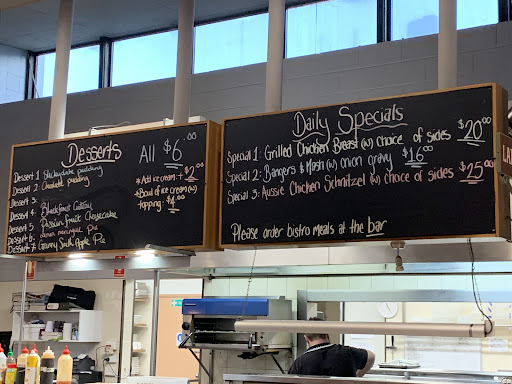 Desserts
All $6.00
Dessert 1: Stickydate pudding
Dessert 2: Chocolate pudding
Dessert 3:
Dessert 4: Blackforest Gateau
Dessert 5: Passion fruit Cheesecake
Dessert 6: Lemon meringue Pie
Dessert 7: Granny Smith Apple Pie
*Add ice cream: $2.00
*Bowl of ice cream (w)
topping: $4.00
Daily Specials
Special 1: Grilled Chicken Breast (w) choice of sides $20.00
Special 2: Bangers & Mash (w) onion gravy $16.00
Special 3: Aussie Chicken Schnitzel (w) choice of sides $25.00
Please order bistro meals at the bar